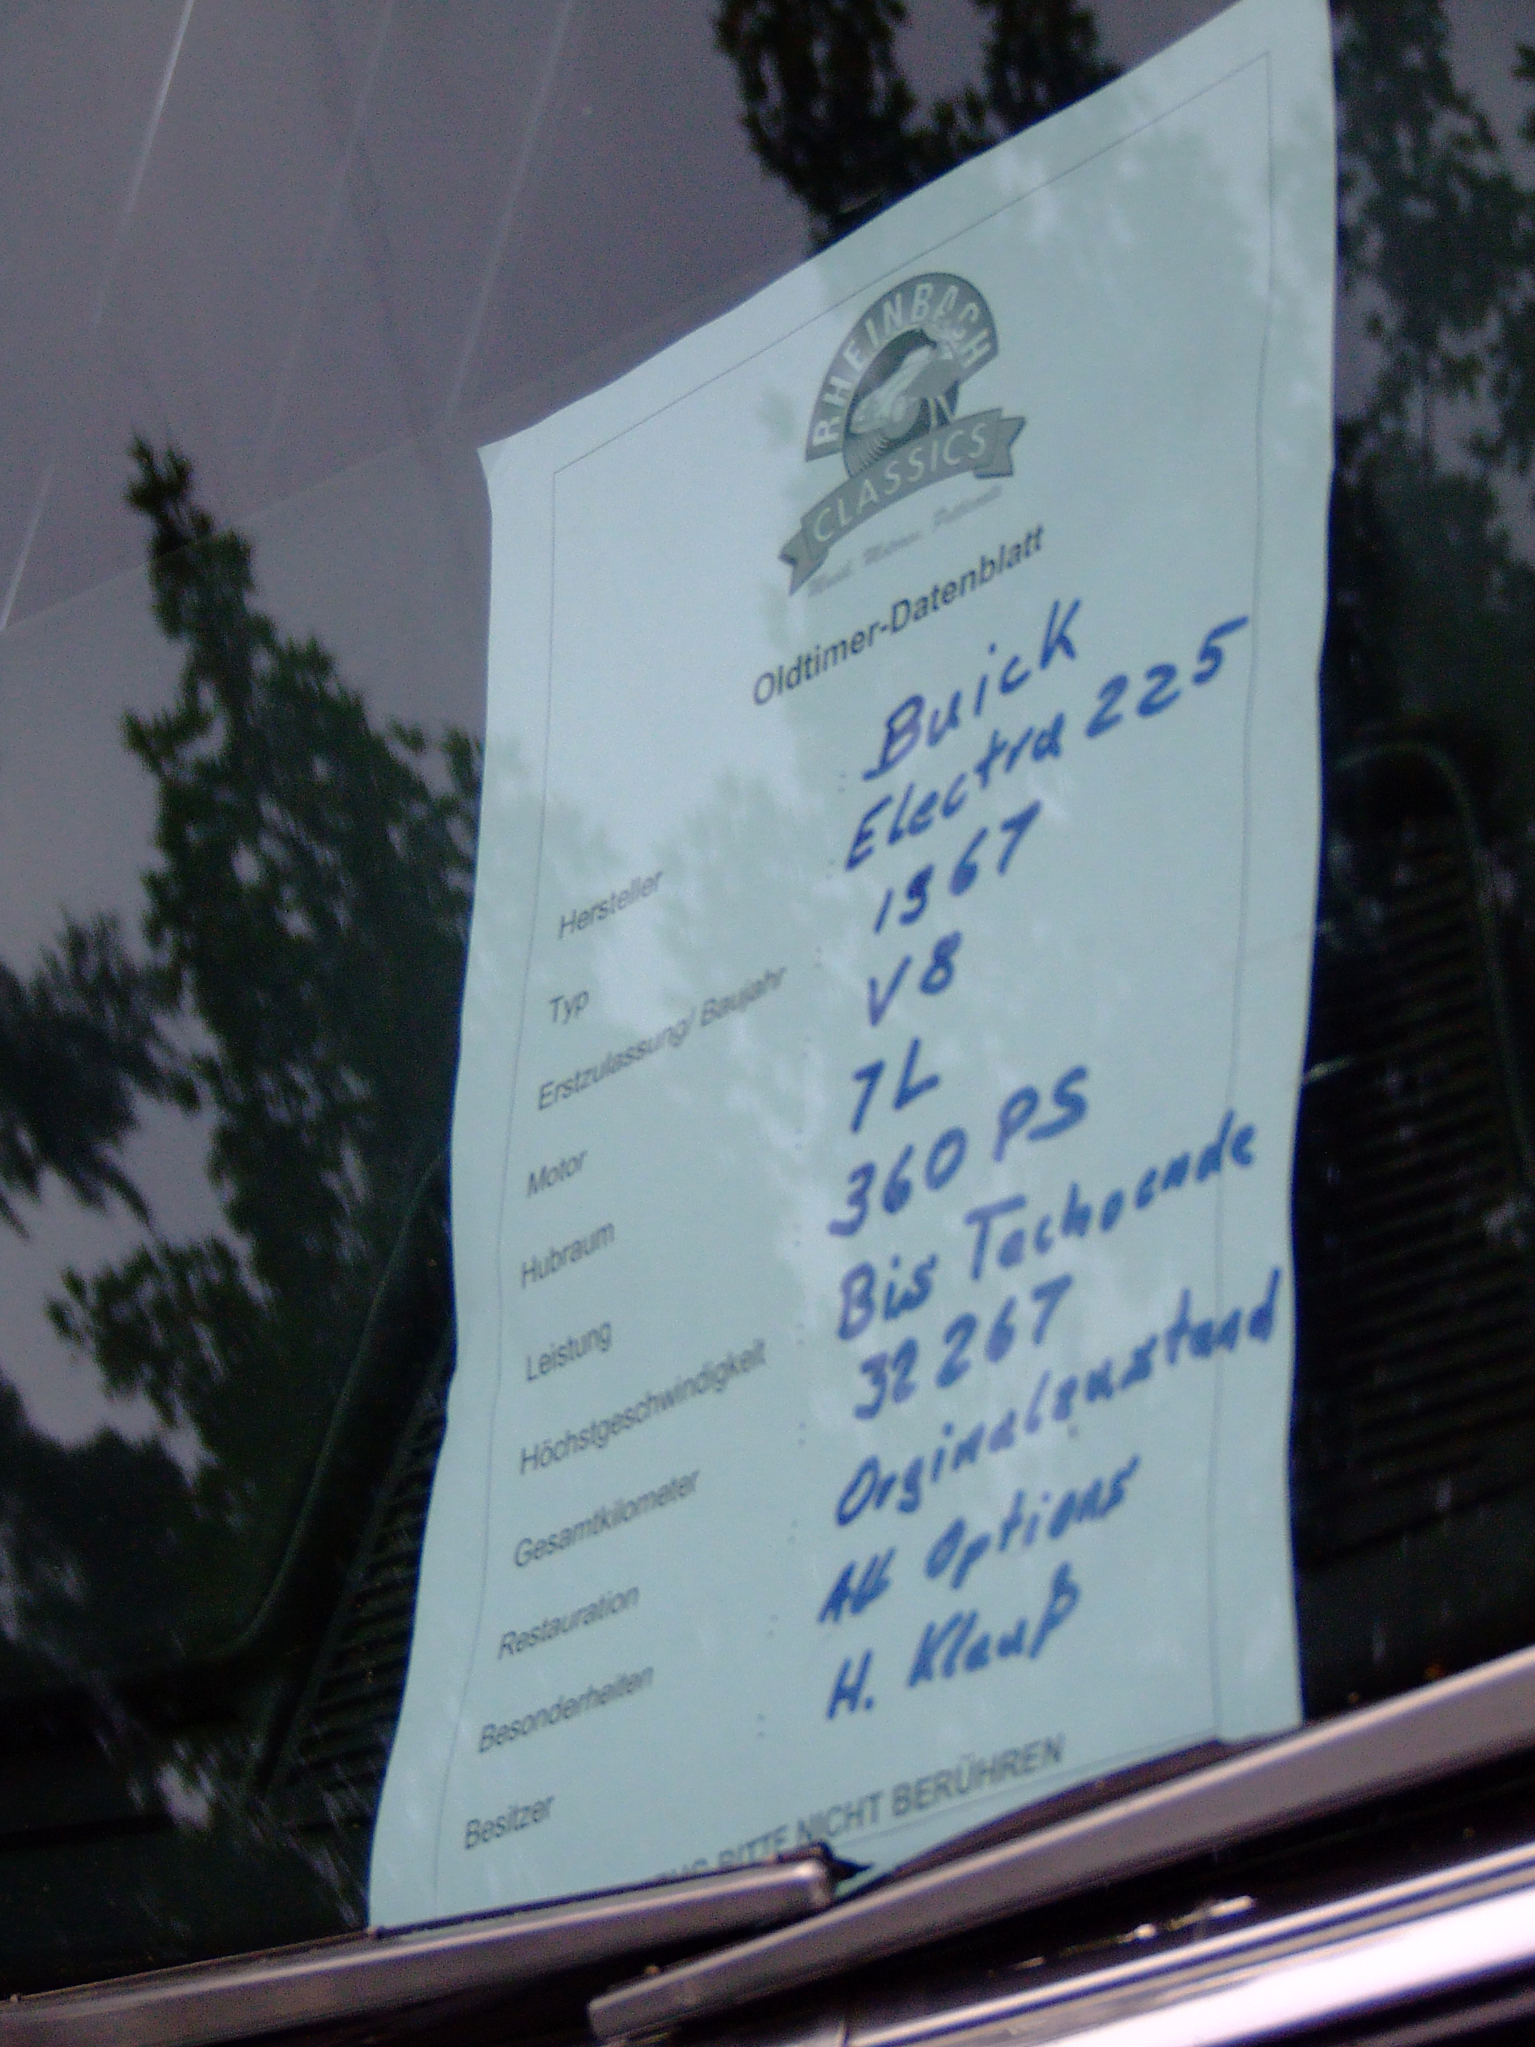 RHEINBACH
CLASSICS
Oldtimer-Datenblatt
Hersteller : Buick
Typ : Electra 225
Erstzulassung/ Baujahr : 1967
Motor : V8
Hubraum : 7L
Leistung : 360 PS
Höchstgeschwindigkeit : Bis Tachoende
Gesamtkilometer : 32267
Restauration : Orginalzustand
Besonderheiten : All Options
Besitzer : H. Klauß
BITTE NICHT BERÜHREN